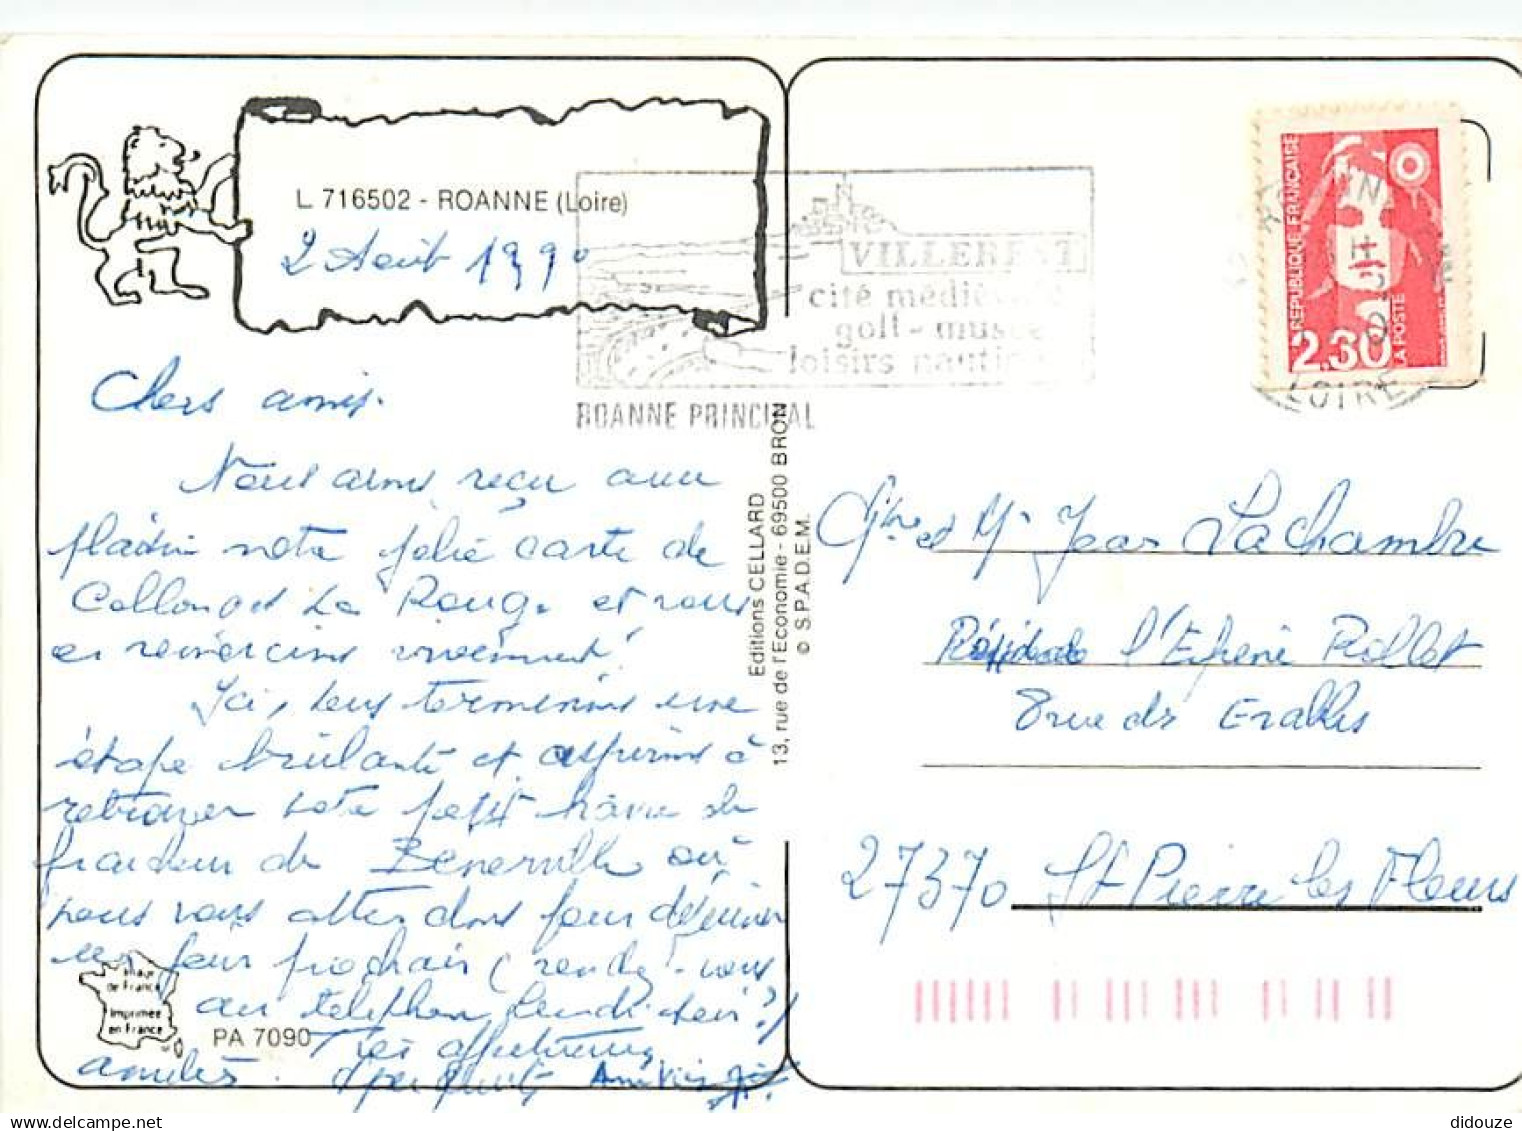 L 716502 - ROANNE (Loire)
2 Août 1990
VILLEREST
cité médiévale
golf - musée
loisirs nauti
ROANNE PRINCIPAL
REPUBLIQUE FRANÇAISE
2,30
LA POSTE
LOIRE
Chers amis.
Nous avons reçu avec
plaisir notre jolie carte de
Collonges La Rouge et vous
en remercions vivement!
Ici, nous terminons une
étape brûlante et aspirons à
retrouver notre petit hâvre de
fraicheur de Benerville où
nous vous attendons pour déjeuner
un jour prochain (rendez-vous
au telephone lundi soir?)
Très affectueusement
amitiés.
Editions CELLARD
13, rue de l'Economie - 69500 BRON
© S.P.A.D.E.M.
Mme et Mr Jean Lachambre
Résidence l'Ephéni Rollet
8 rue des Erables
27370 St Pierre les Fleurs
Image
de France
Imprimée
en France
PA 7090
didouze